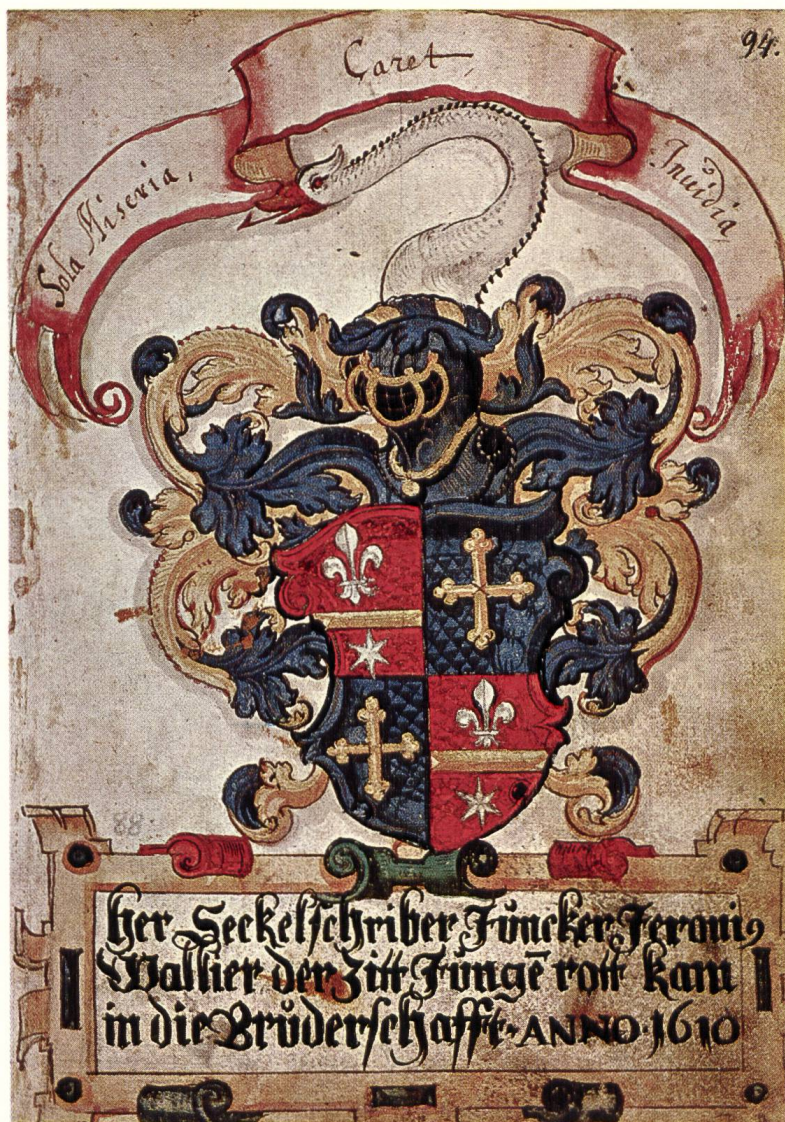 94.
Caret
Sola Miseria,
Inuidia
88
her Seckelschriber Jůncker Jeroni9
Wallier der Zitt Jůngē rott kam
in die Brůderschafft· ANNO·1610